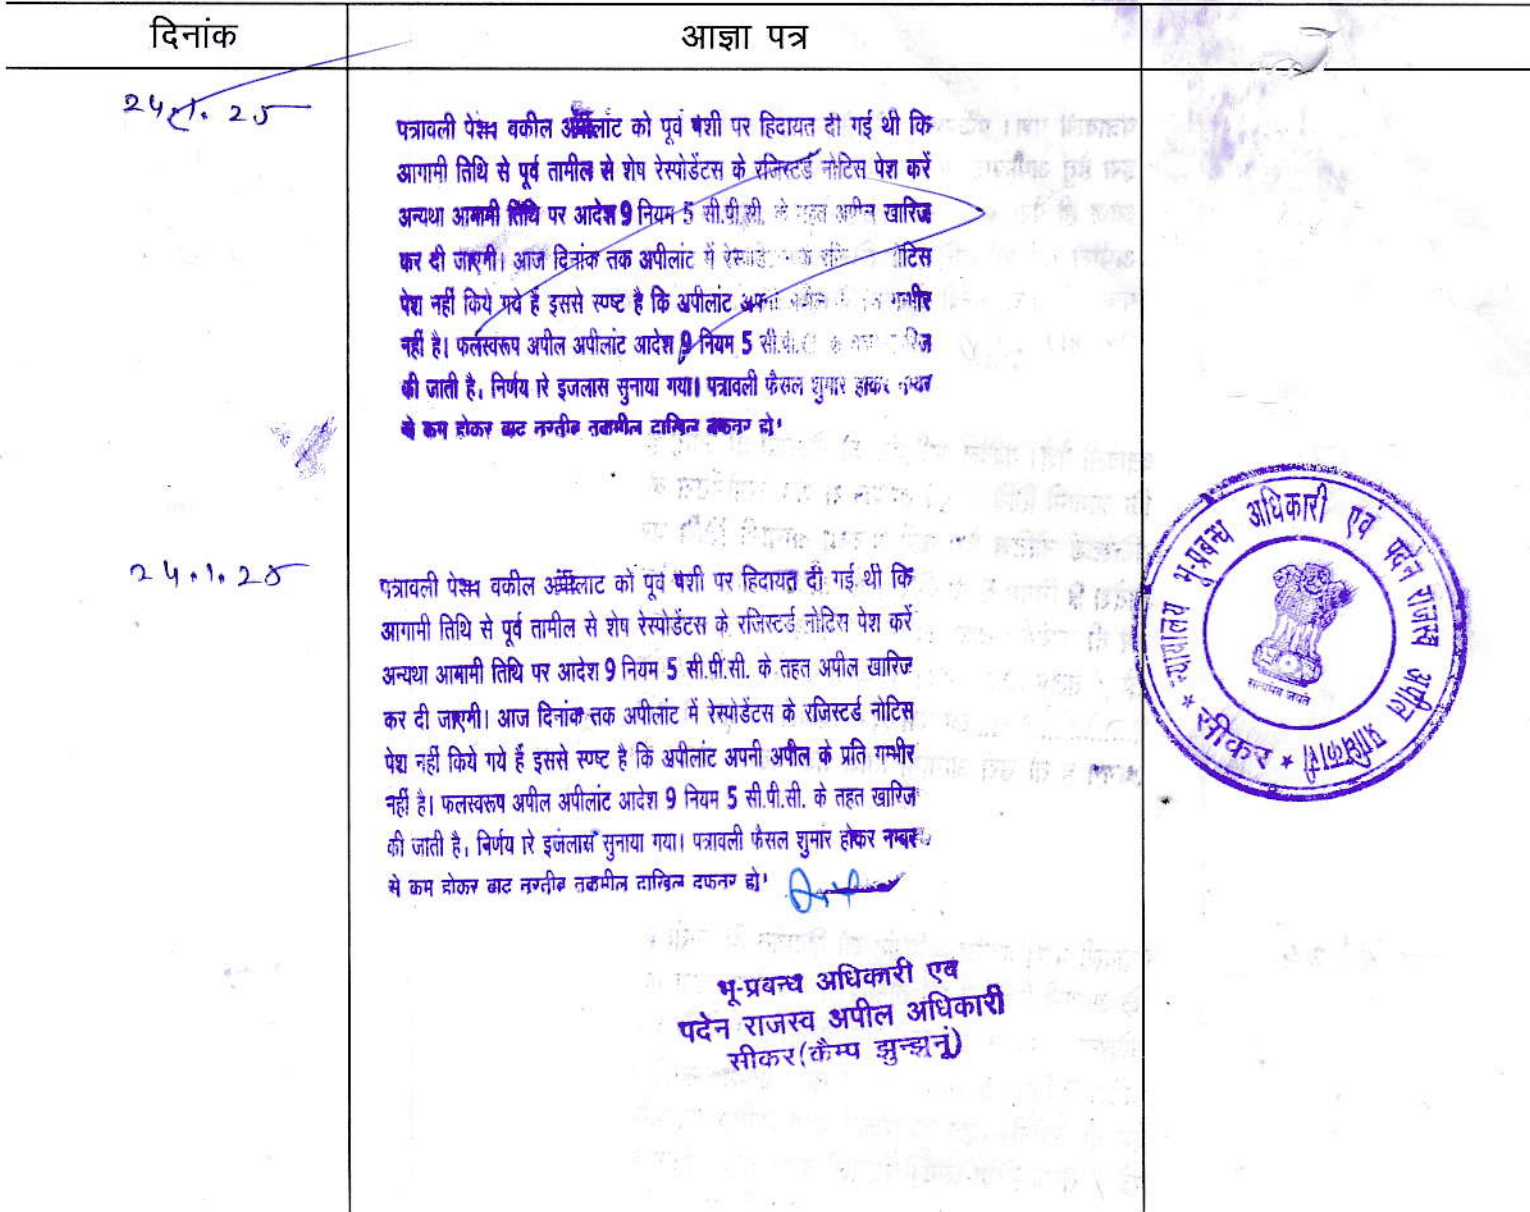 दिनांक
आज्ञा पत्र
24.1.25
पत्रावली पेश। वकील अपीलांट को पूर्व पेशी पर हिदायत दी गई थी कि
आगामी तिथि से पूर्व तामील से शेष रेस्पोडेंटस के रजिस्टर्ड नोटिस पेश करें
अन्यथा आगामी तिथि पर आदेश 9 नियम 5 सी.पी.सी. के तहत अपील खारिज
कर दी जाएगी। आज दिनांक तक अपीलांट में नोटिस
पेश नहीं किये गये हैं इससे स्पष्ट है कि अपीलांट गम्भीर
नहीं है। फलस्वरूप अपील अपीलांट आदेश 9 नियम 5 सी.पी.
की जाती है, निर्णय रे इजलास सुनाया गया। पत्रावली फैसल शुमार होकर नम्बर
से कम होकर बाद दाखिल दफ्तर हो।
24.1.25
पत्रावली पेश। वकील अपीलांट को पूर्व पेशी पर हिदायत दी गई थी कि
आगामी तिथि से पूर्व तामील से शेष रेस्पोडेंटस के रजिस्टर्ड नोटिस पेश करें
अन्यथा आगामी तिथि पर आदेश 9 नियम 5 सी.पी.सी. के तहत अपील खारिज
कर दी जाएगी। आज दिनांक तक अपीलांट में रेस्पोडेंटस के रजिस्टर्ड नोटिस
पेश नहीं किये गये हैं इससे स्पष्ट है कि अपीलांट अपनी अपील के प्रति गम्भीर
नहीं है। फलस्वरूप अपील अपीलांट आदेश 9 नियम 5 सी.पी.सी. के तहत खारिज
की जाती है, निर्णय रे इजलास सुनाया गया। पत्रावली फैसल शुमार होकर नम्बर
से कम होकर बाद तकमील दाखिल दफ्तर हो।
भू-प्रबन्ध अधिकारी एवं
पदेन राजस्व अपील अधिकारी
सीकर(कैम्प झुन्झुनूं)
न्यायालय भू-प्रबन्ध अधिकारी एवं पदेन राजस्व अपील प्राधिकारी
* सीकर *
सत्यमेव जयते